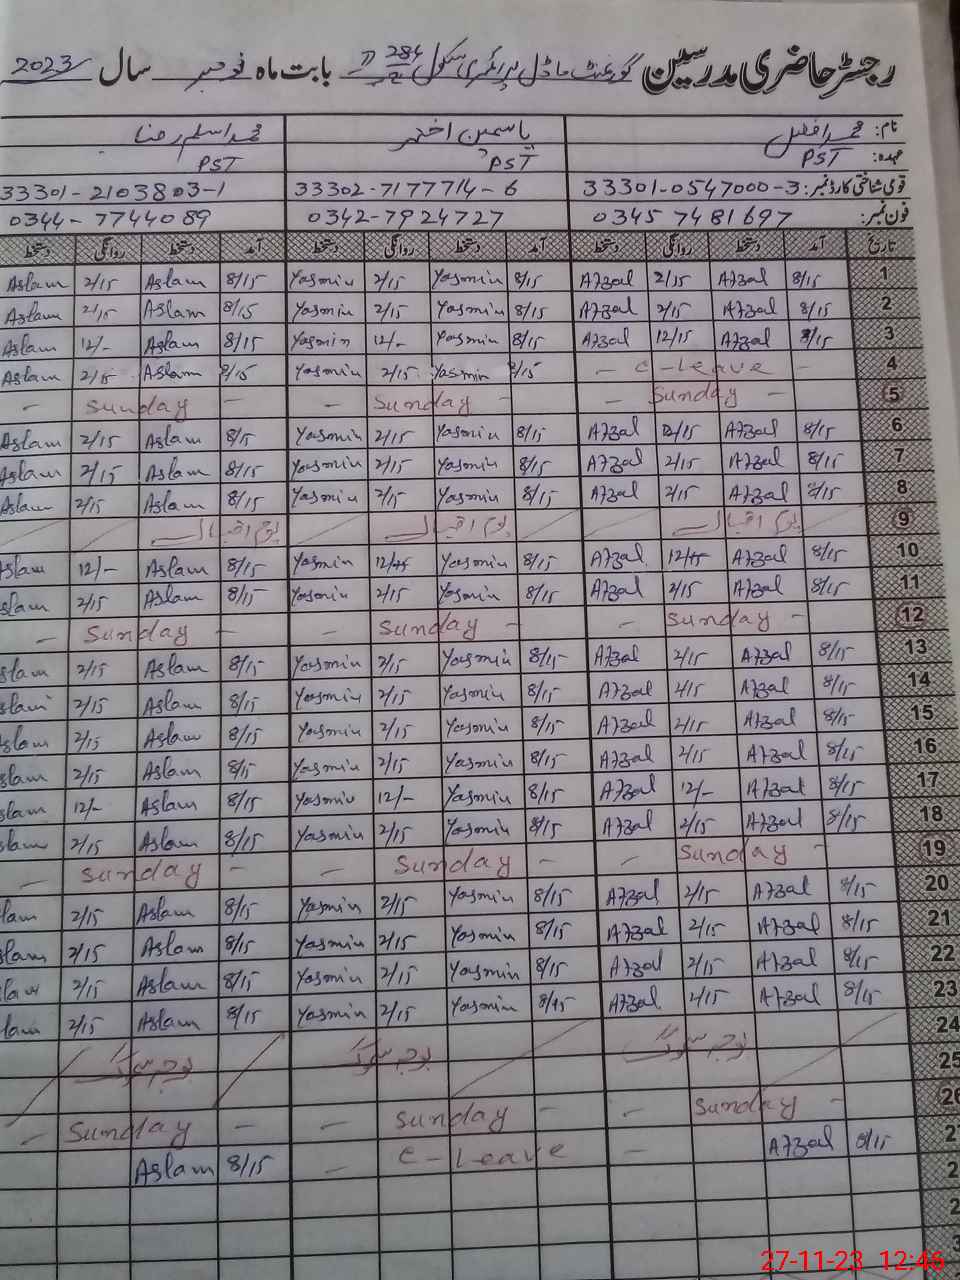 رجسٹر حاضری مدرسین گورنمنٹ ماڈل پرائمری سکول 284 بابت ماہ نومبر سال 2023
نام: محمد افضل یاسمین اختر محمد اسلم رضا
عہدہ: PST PST PST
قومی شناختی کارڈ نمبر: 33301-0547000-3 33302-7177714-6 33301-2103803-1
فون نمبر: 0345 7481697 0342-7924727 0344-7744089
تاریخ آمد دستخط روانگی دستخط آمد دستخط روانگی دستخط آمد دستخط روانگی دستخط
1 8/15 Afzal 2/15 Afzal 8/15 Yasmin 2/15 Yasmin 8/15 Aslam 2/15 Aslam
2 8/15 Afzal 2/15 Afzal 8/15 Yasmin 2/15 Yasmin 8/15 Aslam 2/15 Aslam
3 8/15 Afzal 12/15 Afzal 8/15 Yasmin 12/- Yasmin 8/15 Aslam 12/- Aslam
4 - C-Leave - 8/15 Yasmin 2/15 Yasmin 8/15 Aslam 2/15 Aslam
5 - Sunday - - Sunday - - Sunday -
6 8/15 Afzal 2/15 Afzal 8/15 Yasmin 2/15 Yasmin 8/15 Aslam 2/15 Aslam
7 8/15 Afzal 2/15 Afzal 8/15 Yasmin 2/15 Yasmin 8/15 Aslam 2/15 Aslam
8 8/15 Afzal 2/15 Afzal 8/15 Yasmin 2/15 Yasmin 8/15 Aslam 2/15 Aslam
9 یوم اقبال یوم اقبال یوم اقبال
10 8/15 Afzal 12/15 Afzal 8/15 Yasmin 12/15 Yasmin 8/15 Aslam 12/- Aslam
11 8/15 Afzal 2/15 Afzal 8/15 Yasmin 2/15 Yasmin 8/15 Aslam 2/15 Aslam
12 - Sunday - - Sunday - - Sunday -
13 8/15 Afzal 2/15 Afzal 8/15 Yasmin 2/15 Yasmin 8/15 Aslam 2/15 Aslam
14 8/15 Afzal 2/15 Afzal 8/15 Yasmin 2/15 Yasmin 8/15 Aslam 2/15 Aslam
15 8/15 Afzal 2/15 Afzal 8/15 Yasmin 2/15 Yasmin 8/15 Aslam 2/15 Aslam
16 8/15 Afzal 2/15 Afzal 8/15 Yasmin 2/15 Yasmin 8/15 Aslam 2/15 Aslam
17 8/15 Afzal 12/- Afzal 8/15 Yasmin 12/- Yasmin 8/15 Aslam 12/- Aslam
18 8/15 Afzal 2/15 Afzal 8/15 Yasmin 2/15 Yasmin 8/15 Aslam 2/15 Aslam
19 - Sunday - - Sunday - - Sunday -
20 8/15 Afzal 2/15 Afzal 8/15 Yasmin 2/15 Yasmin 8/15 Aslam 2/15 lam
21 8/15 Afzal 2/15 Afzal 8/15 Yasmin 2/15 Yasmin 8/15 Aslam 2/15 slam
22 8/15 Afzal 2/15 Afzal 8/15 Yasmin 2/15 Yasmin 8/15 Aslam 2/15 slam
23 8/15 Afzal 2/15 Afzal 8/15 Yasmin 2/15 Yasmin 8/15 Aslam 2/15 lam
24
25
26 - Sunday - - Sunday - - Sunday -
2 8/15 Afzal - C-Leave - 8/15 Aslam
2
2
3
27-11-23 12:46